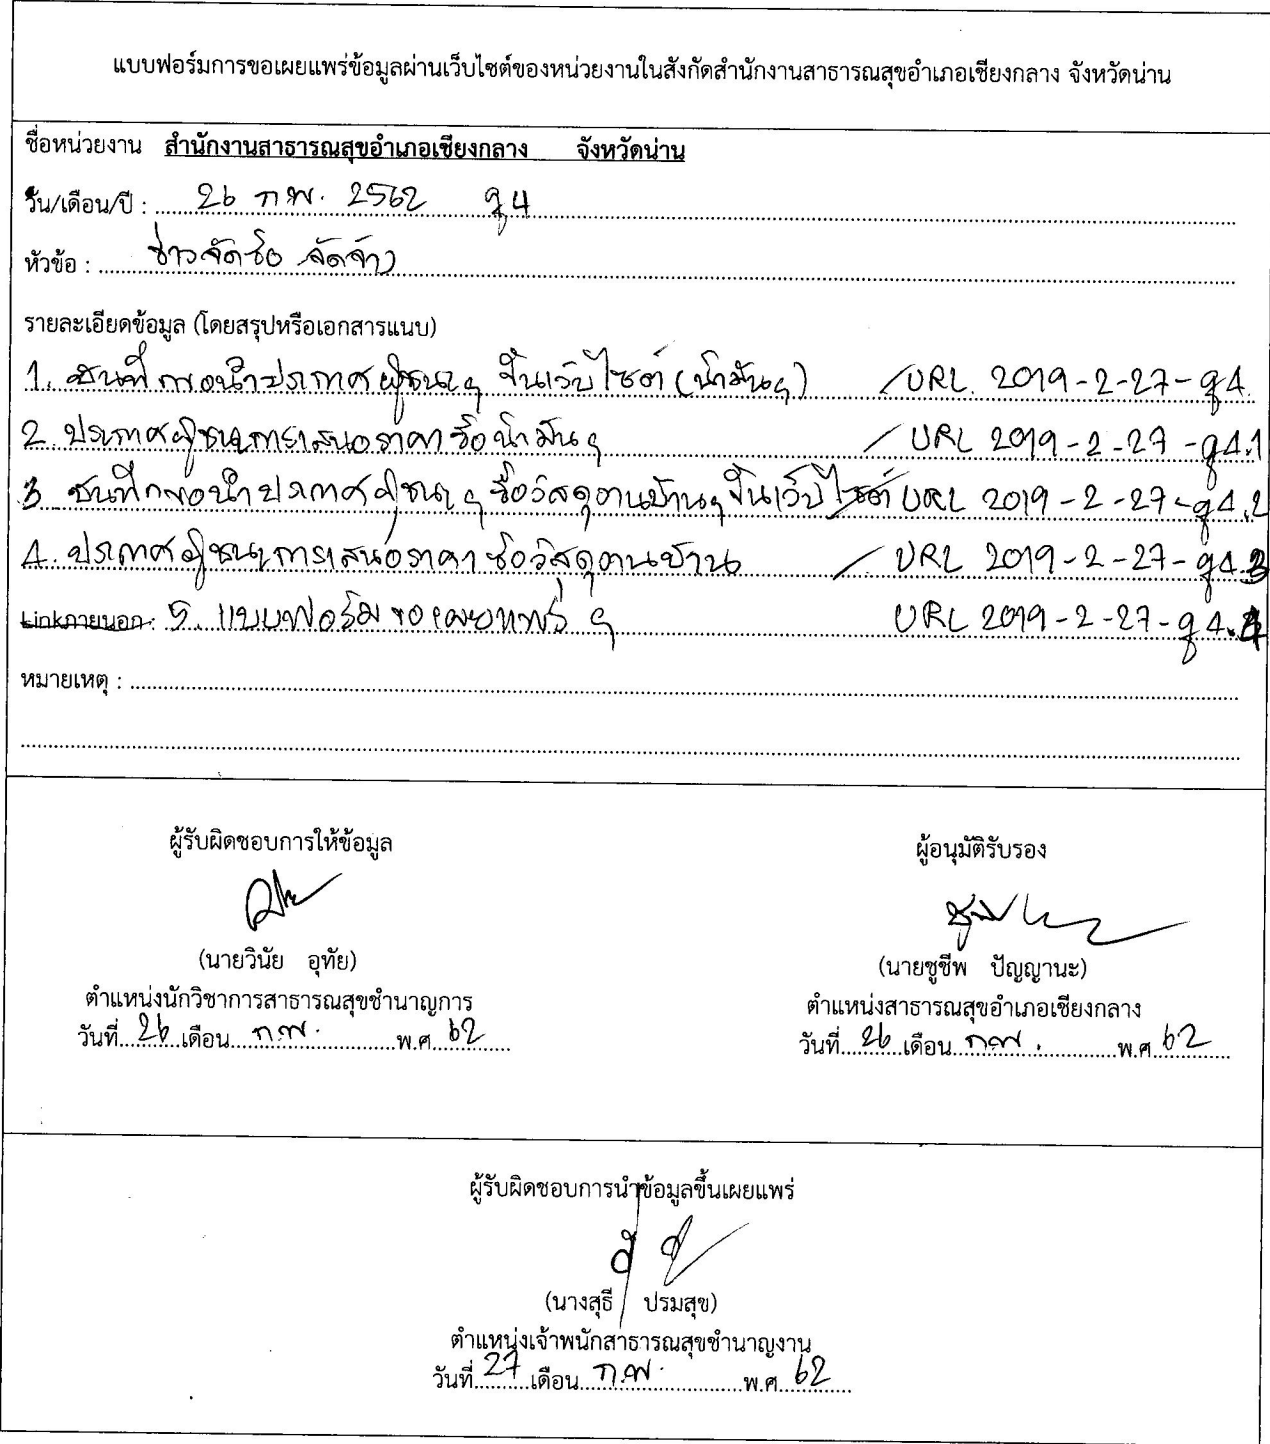 แบบฟอร์มการขอเผยแพร่ข้อมูลผ่านเว็บไซต์ของหน่วยงานในสังกัดสำนักงานสาธารณสุขอำเภอเชียงกลาง จังหวัดน่าน
ชื่อหน่วยงาน สำนักงานสาธารณสุขอำเภอเชียงกลาง จังหวัดน่าน
วัน/เดือน/ปี : 26 กพ. 2562 ชุ 4
หัวข้อ : ข่าวจัดซื้อ จัดจ้าง
รายละเอียดข้อมูล (โดยสรุปหรือเอกสารแนบ)
1. บันทึกขอนำประกาศผู้ชนะฯ ขึ้นเว็บไซต์ (น้ำมันฯ) / URL 2019-2-27-ชุ4.
2. ประกาศผู้ชนะการเสนอราคาซื้อน้ำมันฯ / URL 2019-2-27-ชุ4.1
3. บันทึกขอนำประกาศผู้ชนะฯ ซื้อวัสดุงานบ้านฯ ขึ้นเว็บไซต์ URL 2019-2-27-ชุ4.2
4. ประกาศผู้ชนะการเสนอราคาซื้อวัสดุงานบ้าน / URL 2019-2-27-ชุ4.3
Linkภายนอก: 5. แบบฟอร์มขอเผยแพร่ฯ URL 2019-2-27-ชุ4.4
หมายเหตุ :
ผู้รับผิดชอบการให้ข้อมูล
(นายวินัย อุทัย)
ตำแหน่งนักวิชาการสาธารณสุขชำนาญการ
วันที่ 26 เดือน ก.พ. พ.ศ 62
ผู้อนุมัติรับรอง
(นายชูชีพ ปัญญานะ)
ตำแหน่งสาธารณสุขอำเภอเชียงกลาง
วันที่ 26 เดือน กพ. พ.ศ 62
ผู้รับผิดชอบการนำข้อมูลขึ้นเผยแพร่
(นางสุธี ปรมสุข)
ตำแหน่งเจ้าพนักสาธารณสุขชำนาญงาน
วันที่ 27 เดือน ก.พ. พ.ศ 62